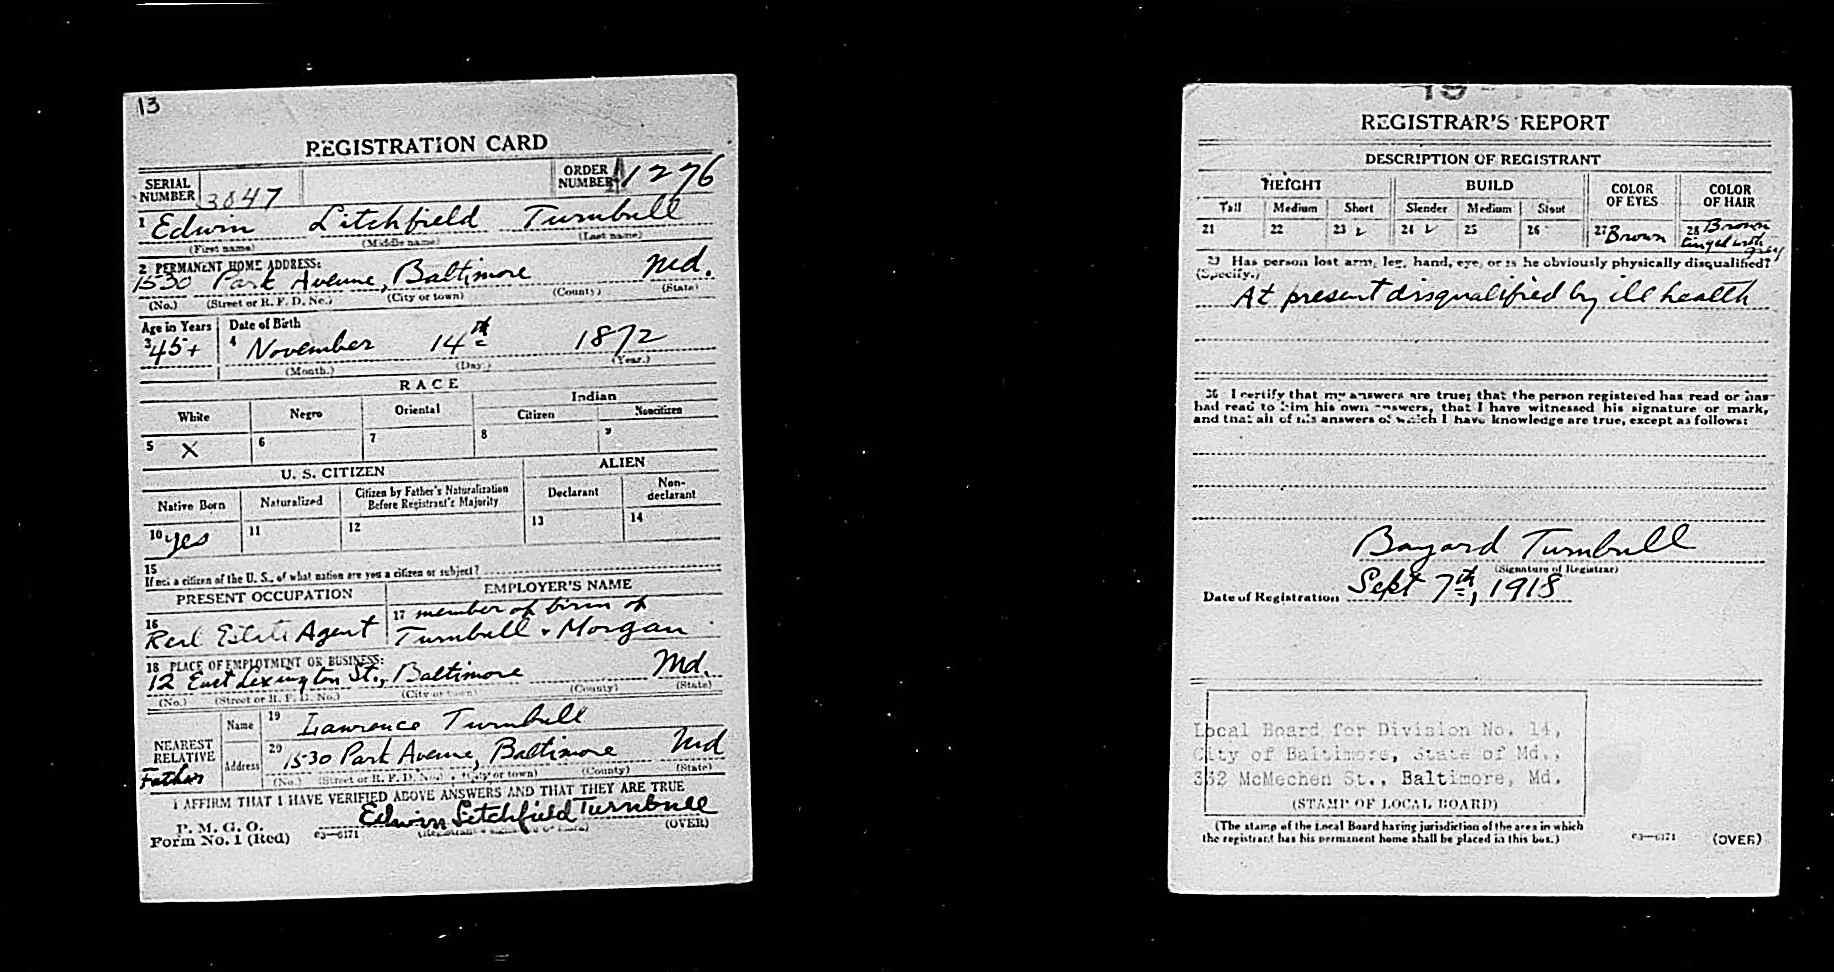 13
REGISTRATION CARD
SERIAL NUMBER 3847 ORDER NUMBER A1276
1 Edwin Litchfield Turnbull
(First name) (Middle name) (Last name)
2 PERMANENT HOME ADDRESS:
1530 Park Avenue, Baltimore Md.
(No.) (Street or R. F. D. No.) (City or town) (County) (State)
Age in Years Date of Birth
3 45+ 4 November 14th 1872
(Month.) (Day.) (Year.)
RACE
White Negro Oriental Indian
Citizen Noncitizen
5 X 6 7 8 9
U. S. CITIZEN ALIEN
Native Born Naturalized Citizen by Father's Naturalization Before Registrant's Majority Declarant Non-declarant
10 yes 11 12 13 14
15
If not a citizen of the U. S., of what nation are you a citizen or subject?
PRESENT OCCUPATION EMPLOYER'S NAME
16 Real Estate Agent 17 member of firm of
Turnbull & Morgan
18 PLACE OF EMPLOYMENT OR BUSINESS:
12 East Lexington St., Baltimore Md.
(No.) (Street or R. F. D. No.) (City or town) (County) (State)
NEAREST RELATIVE Name 19 Lawrence Turnbull
Father Address 20 1530 Park Avenue, Baltimore Md
(No.) (Street or R. F. D. No.) (City or town) (County) (State)
I AFFIRM THAT I HAVE VERIFIED ABOVE ANSWERS AND THAT THEY ARE TRUE
P. M. G. O.
Form No. 1 (Red) 03—6171 Edwin Litchfield Turnbull (OVER)
REGISTRAR'S REPORT
DESCRIPTION OF REGISTRANT
HEIGHT BUILD COLOR OF EYES COLOR OF HAIR
Tall Medium Short Slender Medium Stout
21 22 23 ✓ 24 ✓ 25 26 27 Brown 28 Brown tinged with grey
29 Has person lost arm, leg, hand, eye, or is he obviously physically disqualified?
(Specify.)
At present disqualified by ill health
30 I certify that my answers are true; that the person registered has read or has
had read to him his own answers, that I have witnessed his signature or mark,
and that all of his answers of which I have knowledge are true, except as follows:
Bayard Turnbull
(Signature of Registrar)
Date of Registration Sept 7th, 1918
Local Board for Division No. 14,
City of Baltimore, State of Md.,
352 McMechen St., Baltimore, Md.
(STAMP OF LOCAL BOARD)
(The stamp of the Local Board having jurisdiction of the area in which
the registrant has his permanent home shall be placed in this box.)
03—6171 (OVER)